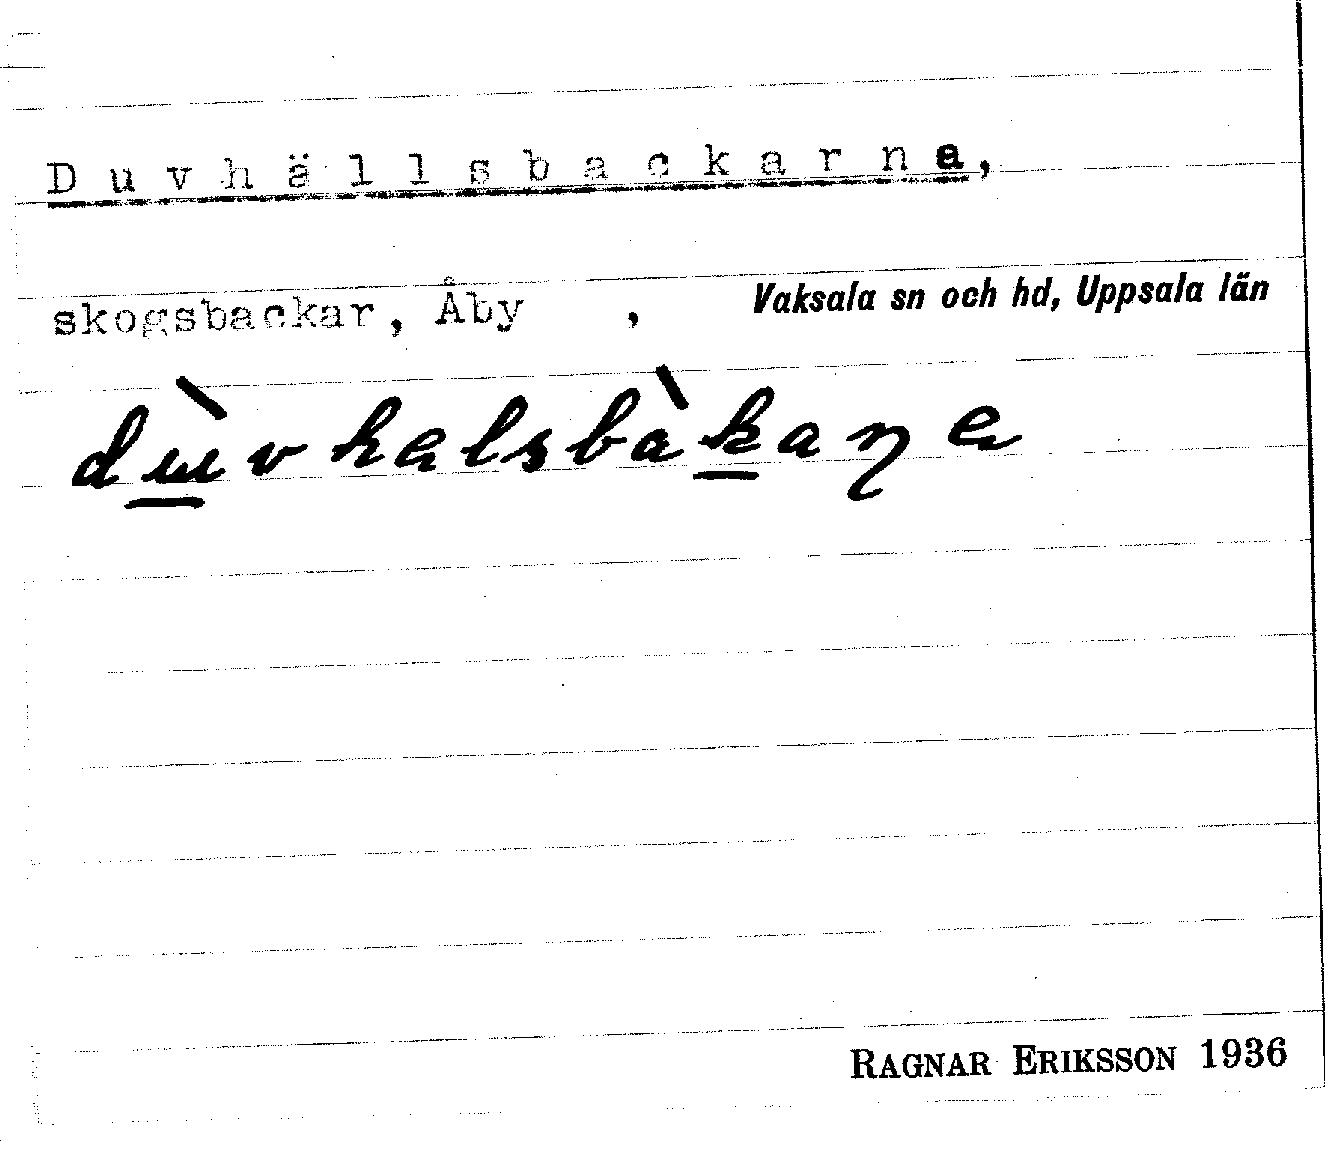 Duvhällsbackarna,
skogsbackar, Åby , Vaksala sn och hd, Uppsala län
dùvhalsbàkaŋa
RAGNAR ERIKSSON 1936